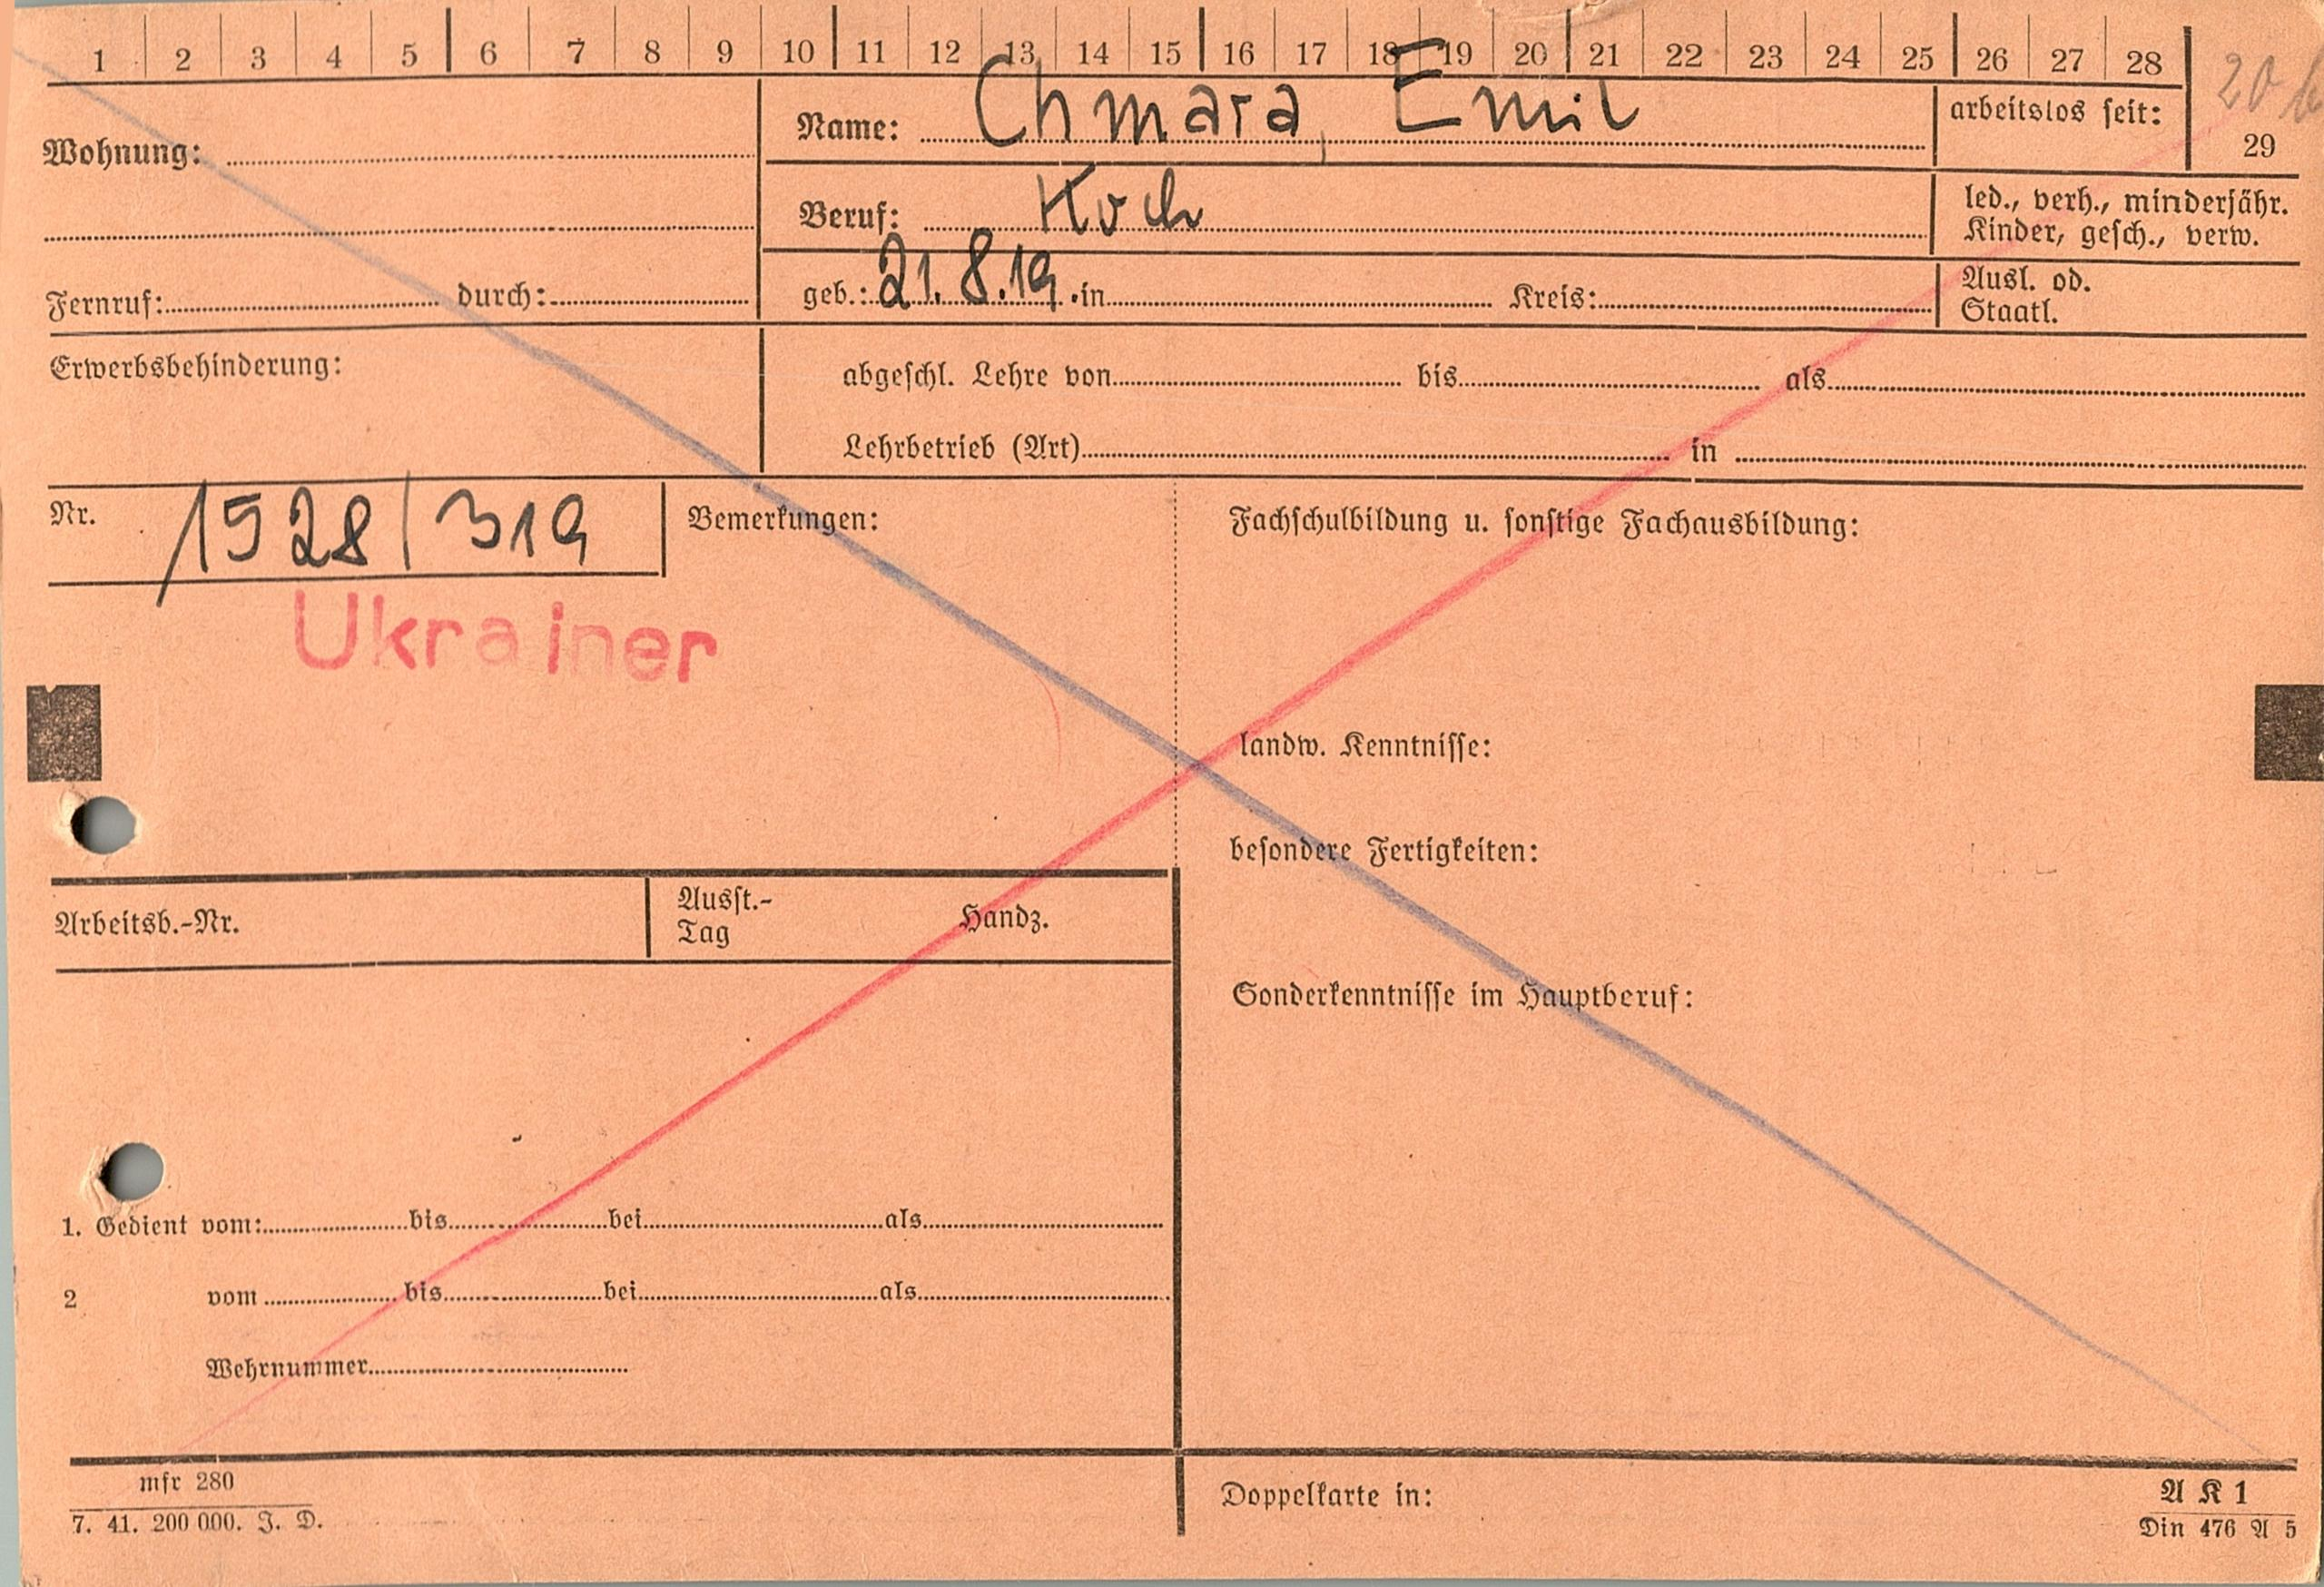 1 2 3 4 5 6 7 8 9 10 11 12 13 14 15 16 17 18 19 20 21 22 23 24 25 26 27 28
20
29
Wohnung:
Name: Chmara, Emil
arbeitslos seit:
Beruf: Koch
led., verh., minderjähr.
Kinder, gesch., verw.
Fernruf: durch:
geb.: 21.8.19. in Kreis:
Ausl. od.
Staatl.
Erwerbsbehinderung:
abgeschl. Lehre von bis als
Lehrbetrieb (Art) in
Nr. 1528/319
Bemerkungen:
Fachschulbildung u. sonstige Fachausbildung:
Ukrainer
landw. Kenntnisse:
besondere Fertigkeiten:
Arbeitsb.-Nr.
Ausst.-
Tag
Handz.
Sonderkenntnisse im Hauptberuf:
1. Gedient vom: bis bei als
2 vom bis bei als
Wehrnummer
mfr 280
7. 41. 200 000. J. D.
Doppelkarte in:
A K 1
Din 476 A 5